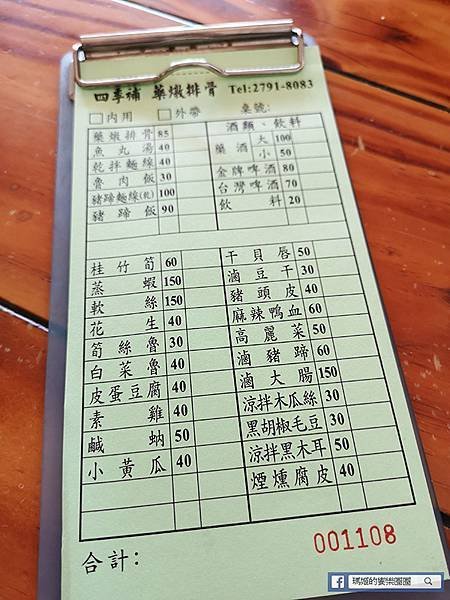 四季補 藥燉排骨 Tel:2791-8083
□內用 □外帶 桌號:
藥燉排骨 85
魚丸湯 40
乾拌麵線 40
魯肉飯 30
豬蹄麵線(乾) 100
豬蹄飯 90
酒類、飲料
藥酒 大 100
小 50
金牌啤酒 80
台灣啤酒 70
飲料 20
桂竹筍 60
蒸蝦 150
軟絲 150
花生 40
筍絲魯 30
白菜魯 40
皮蛋豆腐 40
素雞 40
鹹蚋 50
小黃瓜 40
干貝唇 50
滷豆干 30
豬頭皮 40
麻辣鴨血 60
高麗菜 50
滷豬蹄 60
滷大腸 150
涼拌木瓜絲 30
黑胡椒毛豆 30
涼拌黑木耳 50
煙燻腐皮 40
合計:
001108
瑪姬的窩樂圈圈